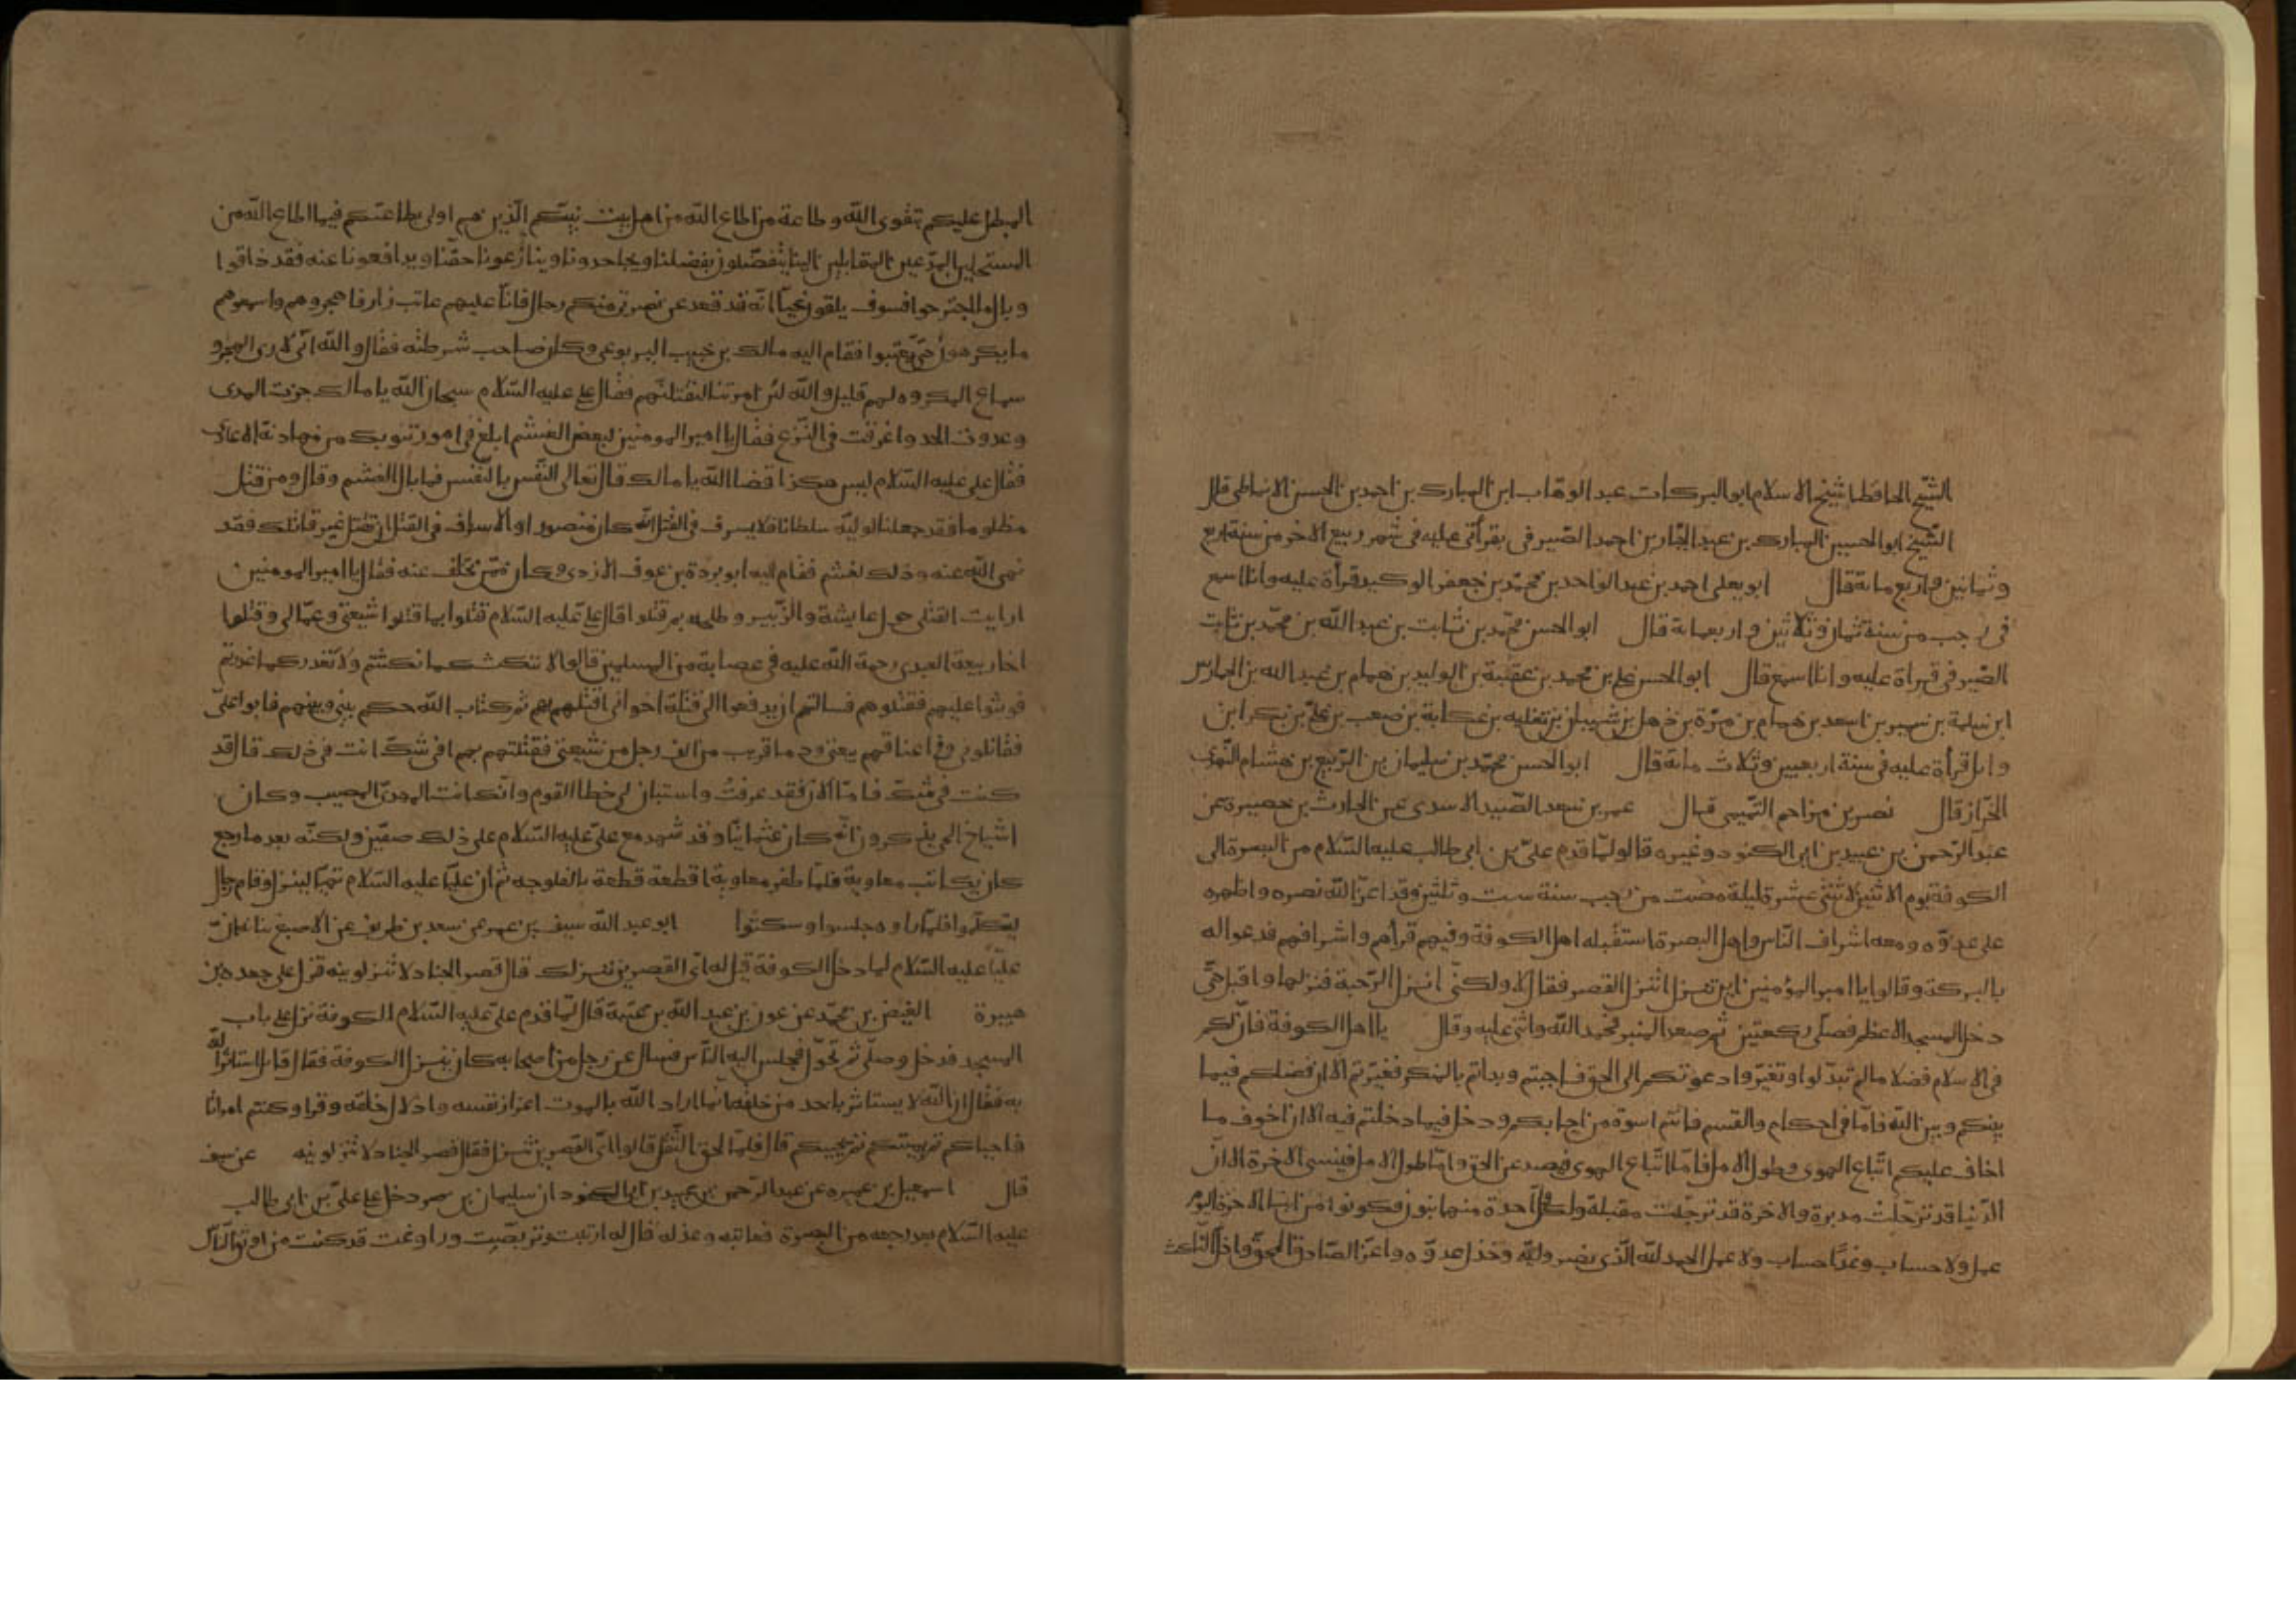 الشيخ الحافظ شيخ الاسلام ابو البركات عبد الوهاب ابن المبارك بن احمد بن الحسن الانماطي قال
الشيخ ابو الحسين المبارك بن عبد الجبار بن احمد الصيرفي بقرأتي عليه في شهر ربيع الاخر من سنة اربع
وثمانين واربع مائة قال ابو يعلى احمد بن عبد الواحد بن محمد بن جعفر الوكيل قرأة عليه وانا اسمع
في رجب من سنة ثمان وثلاثين واربعمائة قال ابو الحسن محمد بن ثابت بن عبد الله بن محمد بن ثابت
الصيرفي قراة عليه وانا اسمع قال ابو الحسن علي بن محمد بن عقبة بن الوليد بن همام بن عبد الله بن الحارث
ابن سلمة بن سمير بن اسعد بن همام بن مرة بن ذهل بن شيبان بن ثعلبة بن عكابة بن صعب بن علي بن بكر ابن
وائل قرأة عليه في سنة اربعين وثلاث مائة قال ابو الحسن محمد بن سليمان بن الربيع بن هشام النهدي
الخزاز قال نصر بن مزاحم التميمي قال عمر بن سعد الصيد الاسدي عن الحارث بن حصيرة عن
عبد الرحمن بن عبيد بن ابي الكنود وغيره قالوا لما قدم علي بن ابي طالب عليه السلام من البصرة الى
الكوفة يوم الاثنين لاثنتي عشرة ليلة مضت من رجب سنة ست وثلثين وقد اعز الله نصره واظهره
على عدوه ومعه اشراف الناس واهل البصرة استقبله اهل الكوفة وفيهم قرأهم واشرافهم فدعوا له
بالبركة وقالوا يا امير المؤمنين اين تنزل اتنزل القصر فقال لا ولكني انزل الرحبة فنزلها واقبل حتى
دخل المسجد الاعظم فصلى ركعتين ثم صعد المنبر فحمد الله واثنى عليه وقال يا اهل الكوفة فان لكم
في الاسلام فضلا ما لم تبدلوا وتغيروا دعوتكم الى الحق فاجبتم وبداتم بالمنكر فغيرتم الا ان فضلكم فيما
بينكم وبين الله فاما في احكام والقسم فانتم اسوة من اجابكم ودخل فيما دخلتم فيه الا ان اخوف ما
اخاف عليكم اتباع الهوى وطول الامل فاما اتباع الهوى فيصد عن الحق واما طول الامل فينسي الاخرة الا ان
الدنيا قد ترحلت مدبرة والاخرة قد ترحلت مقبلة ولكل واحدة منهما بنون فكونوا من ابنا الاخرة اليوم
عمل ولا حساب وغدا حساب ولا عمل الحمد لله الذي نصر وليه وخذل عدوه واعز الصادق المحق واذل الناكث
المبطل عليكم بتقوى الله وطاعة من اطاع الله من اهل بيت نبيكم الذين هم اولى بطاعتكم فيما اطاع الله من
المستحلين المدعين المقابلين الينا يتفضلون بفضلنا ويجاحدونا وينازعونا حقنا ويدافعونا عنه فقد ذاقوا
وبال ما اجترحوا فسوف يلقون غيا انه قد قعد عن نصرتي منكم رجال فانا عليهم عاتب زار فاهجروهم واسمعوهم
ما يكرهون حتى يعتبوا فقام اليه مالك بن حبيب اليربوعي وكان صاحب شرطته فقال والله اني لارى الهجر و
سماع المكروه لهم قليل والله لئن امرتنا لنقتلنهم فقال علي عليه السلام سبحان الله يا مالك جزت المدى
وعدوت الحد واغرقت في النزع فقال يا امير المومنين لبعض الغشم ابلغ في امور تنوبك من مهادنة الاعادي
فقال علي عليه السلام ليس هكذا قضا الله يا مالك قال تعالى النفس بالنفس فما بال الغشم وقال ومن قتل
مظلوما فقد جعلنا لوليه سلطانا فلا يسرف في القتل انه كان منصورا والاسراف في القتل ان تقتل غير قاتلك فقد
نهى الله عنه وذلك لغشم فقام اليه ابو بردة بن عوف الازدي وكان ممن تخلف عنه فقال يا امير المومنين
ارايت القتلى حول عايشة والزبير وطلحة بم قتلوا قال علي عليه السلام قتلوا بما قتلوا شيعتي وعمالي وقتلوا
اخا ربيعة العبدي رحمة الله عليه في عصابة من المسلمين قالوا لا ننكث كما نكثتم ولا نغدر كما غدرتم
فوثبوا عليهم فقتلوهم فسالتهم ان يدفعوا الى قتلة اخواني اقتلهم بهم ثم كتاب الله حكم بيني وبينهم فابوا علي
فقاتلوني وفي اعناقهم بيعتي ودما قريب من الف رجل من شيعتي فقتلتهم بهم افي شك انت في ذلك قال قد
كنت في شك فاما الان فقد عرفت واستبان لي خطا القوم وانك انت المهدي المصيب وكان
اشياخ الحي يذكرون انه كان عثمانيا وقد شهد مع علي عليه السلام على ذلك صفين ولكنه بعد ما رجع
كان يكاتب معاوية فلما ظفر معاوية اقطعه قطعة بالفلوجه ثم ان عليا عليه السلام تهيا لينزل وقام رجال
ليتكلموا فلما راوه جلسوا وسكتوا ابو عبد الله سيف بن عمر عن سعد بن طريف عن الاصبغ بن نباتة ان
عليا عليه السلام لما دخل الكوفة قيل له اي القصرين ننزلك قال قصر الخبال لا تنزلونيه فنزل على جعده بن
هبيرة الفيض بن محمد عن عون بن عبد الله بن عتبة قال لما قدم علي عليه السلام الكوفة نزل على باب
المسجد فدخل وصلى ثم تحول فجلس اليه الناس فسال عن رجل من اصحابه كان ينزل الكوفة فقال قايل استاثر الله
به فقال ان الله لا يستاثر باحد من خلقه انما اراد الله بالموت اعزاز نفسه واذلال خلقه وقرا وكنتم امواتا
فاحياكم ثم يميتكم ثم يحييكم قال فلما لحق الثقل قالوا اي القصرين تنزل فقال قصر الخبال لا تنزلونيه عن سيف
قال اسمعيل بن عميره عن عبد الرحمن بن عبيد بن ابي الكنود ان سليمان بن صرد دخل على علي بن ابي طالب
عليه السلام بعد رجعه من البصرة فعاتبه وعذله قال له ارتبت وتربصت وراوغت قد كنت من اوثق الناس